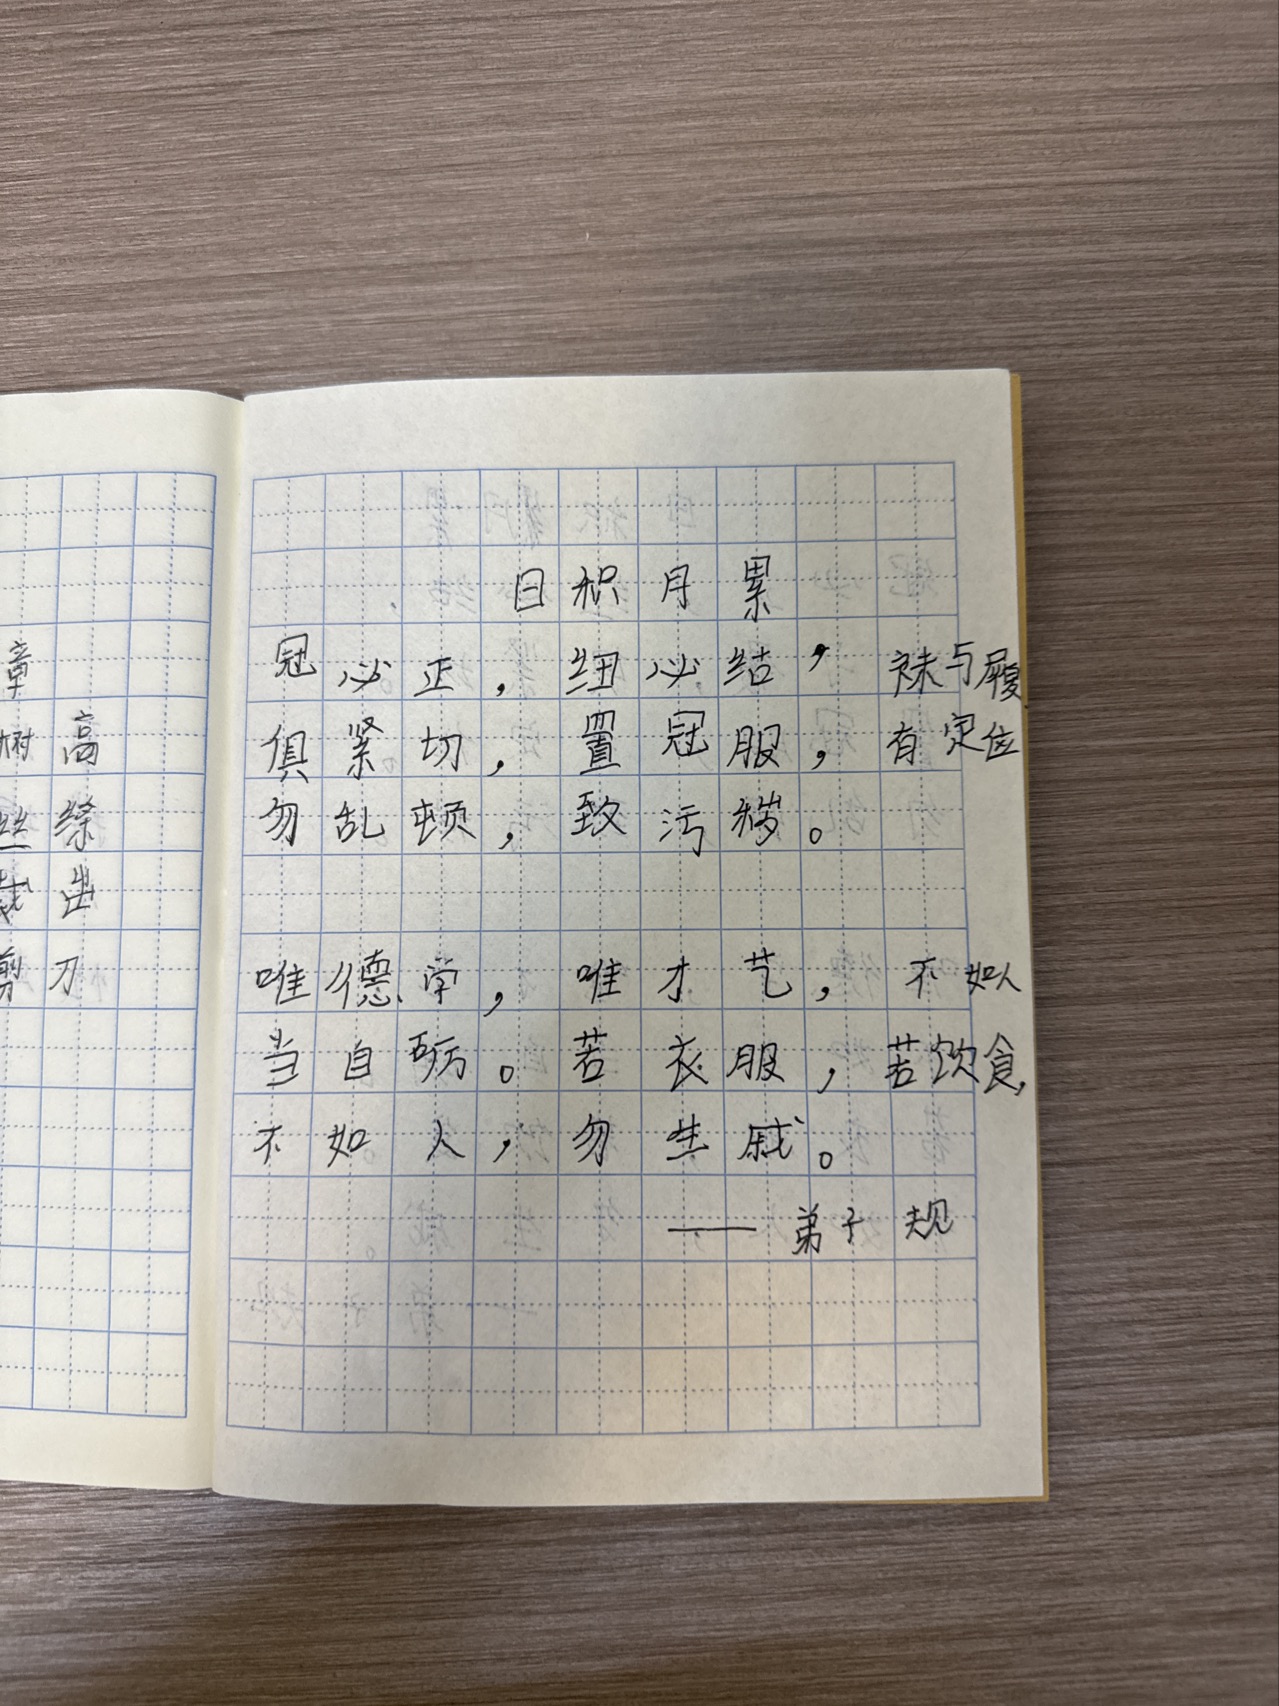 章
树高
丝绦
裁出
剪刀
日积月累
冠必正，纽必结，袜与履
俱紧切，置冠服，有定位
勿乱顿，致污秽。
唯德学，唯才艺，不如人
当自砺。若衣服，若饮食，
不如人，勿生戚。
——弟子规